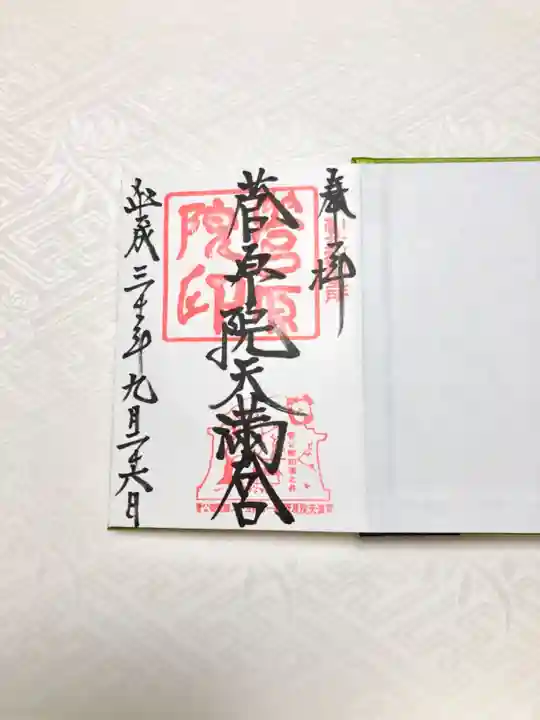 奉拝
菅原院天満宮
平成三十年九月二十六日
菅原
院印